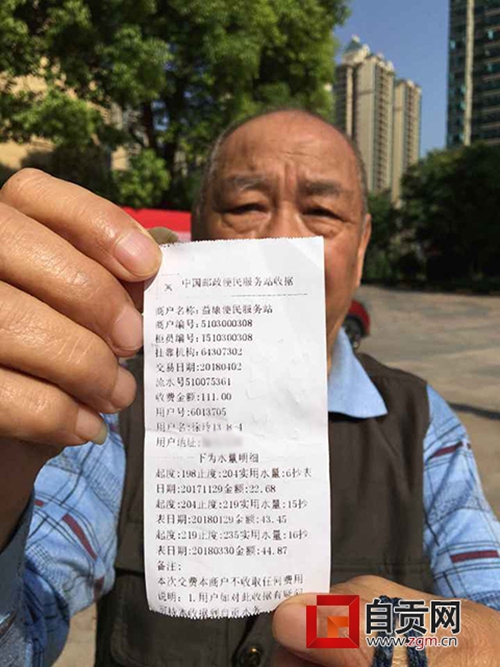 中国邮政便民服务站收据
商户名称:益康便民服务站
商户编号:5103000308
柜员编号:1510300308
挂靠机构:64307302
交易日期:20180402
流水号510075361
收费金额:111.00
用户号:6013705
用户名:徐玲13-8-4
用户地址:
——下为水量明细
起度:198止度:204实用水量:6抄表
日期:20171129金额:22.68
起度:204止度:219实用水量:15抄
表日期:20180129金额:43.45
起度:219止度:235实用水量:16抄
表日期:20180330金额:44.87
备注:
本次交费本商户不收取任何费用
说明:1.用户如对此收据有疑问
可持本收据到自来水务
自贡网
www.zgm.cn